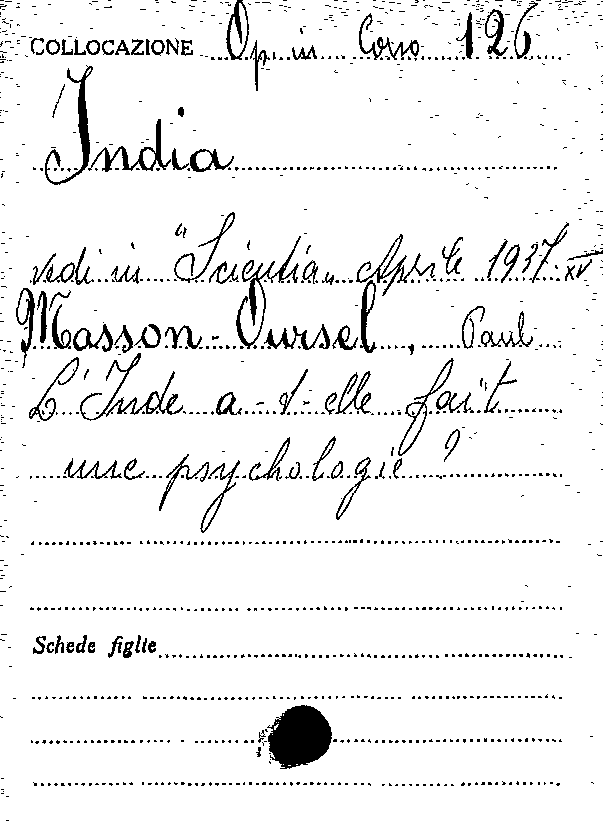 COLLOCAZIONE Op. in Corso 126
India
vedi in "Scientia" Aprile 1937-XV
Masson-Oursel, Paul
L'Inde a-t-elle fait
une psychologie?
Schede figlie